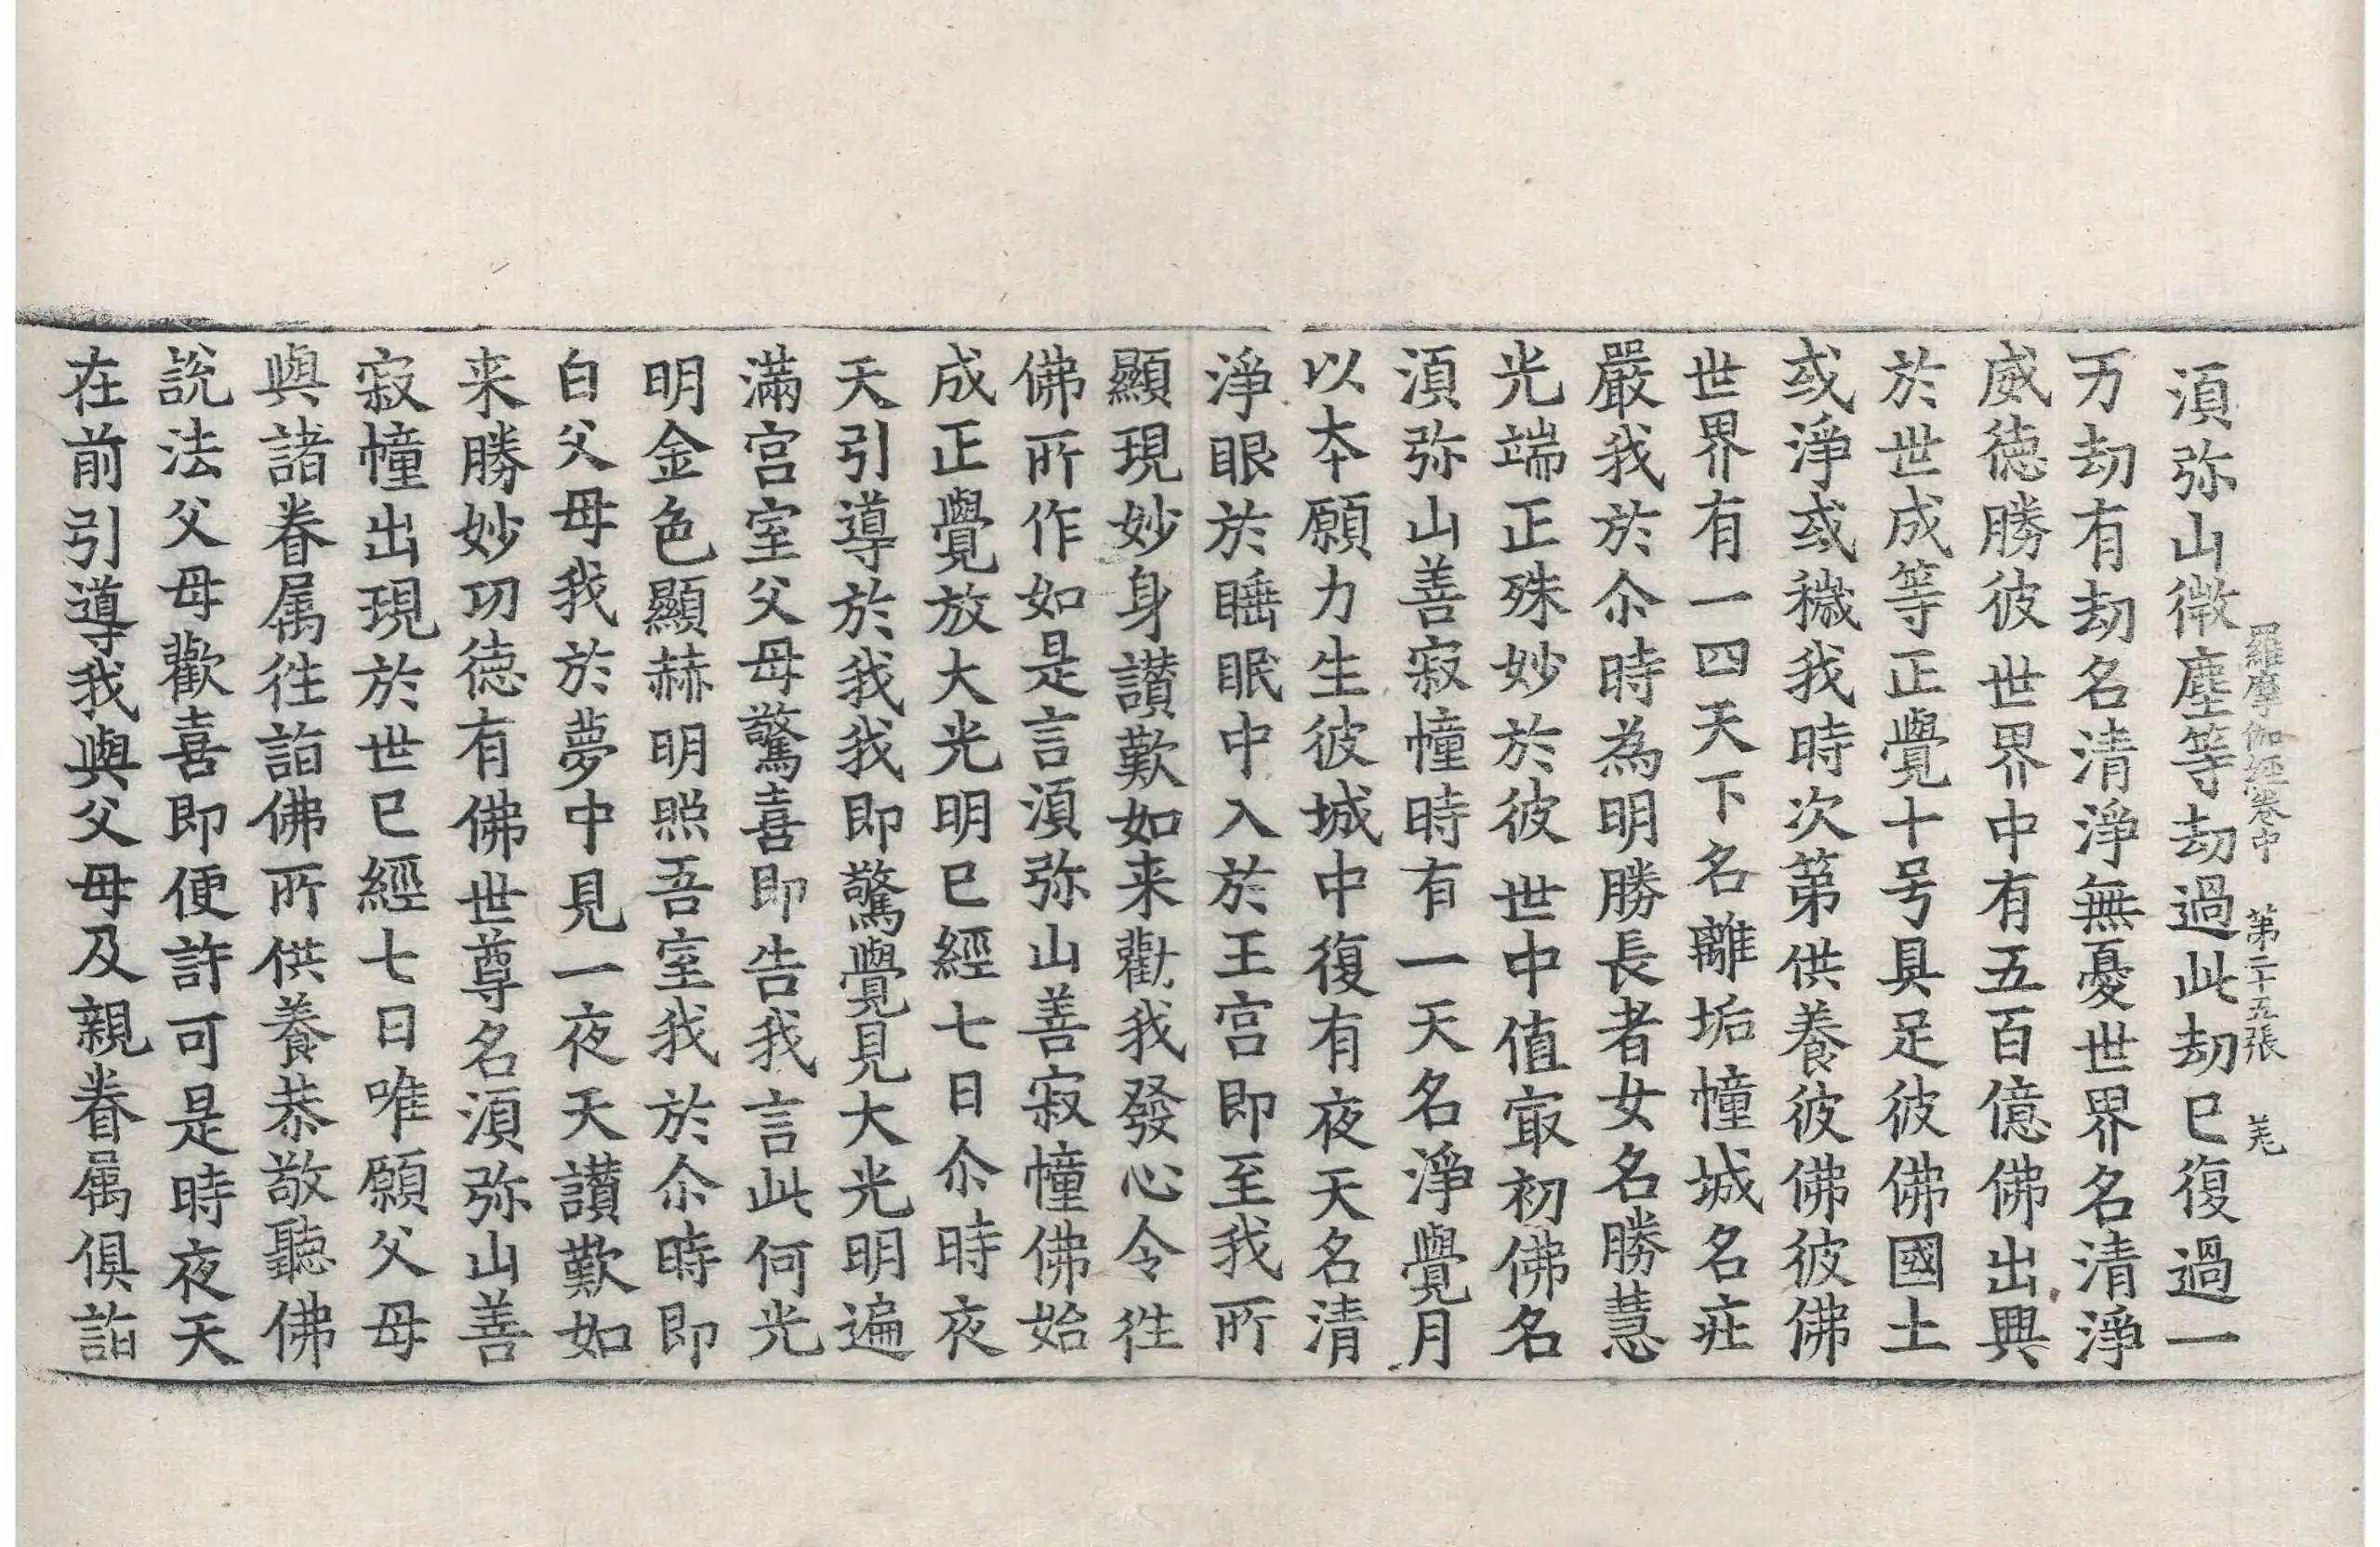 羅摩伽經卷中　第二十五張　羌
湏弥山微塵等劫過此劫已復過一
万劫有劫名清淨無憂世界名清淨
威德勝彼世界中有五百億佛出興
於世成等正覺十号具足彼佛國土
或淨或穢我時次第供養彼佛彼佛
世界有一四天下名離垢幢城名疟
嚴我於尒時為明勝長者女名勝慧
光端正殊妙於彼世中值㝡初佛名
湏弥山善寂幢時有一天名淨覺月
以本願力生彼城中復有夜天名清
淨眼於睡眠中入於王宮即至我所
顯現妙身讃歎如来勸我發心令徃
佛所作如是言湏弥山善寂幢佛始
成正覺放大光明已經七日尒時夜
天引導於我我即驚覺見大光明遍
滿宮室父母驚喜即告我言此何光
明金色顯赫明照吾室我於尒時即
白父母我於夢中見一夜天讃歎如
来勝妙功德有佛世尊名湏弥山善
寂幢出現於世已經七日唯願父母
與諸眷属徃詣佛所供養恭敬聽佛
說法父母歡喜即便許可是時夜天
在前引導我與父母及親眷属俱詣